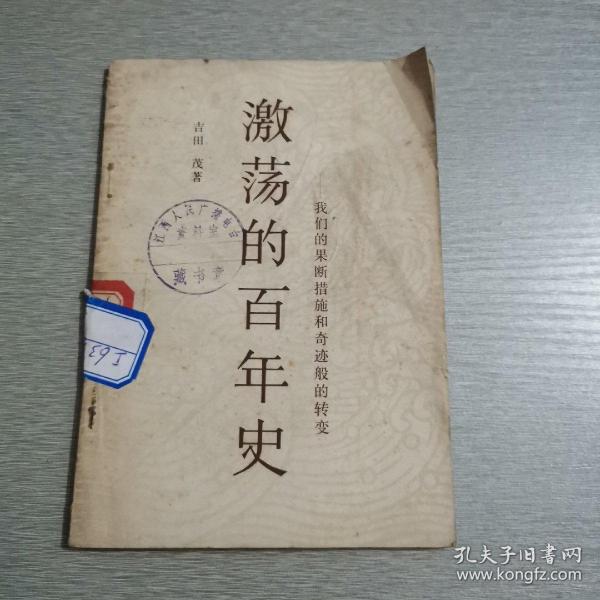 激荡的百年史
——我们的果断措施和奇迹般的转变
吉田 茂著
江西人民广播电台
资料室
藏书章
孔夫子旧书网
www.kongfz.com